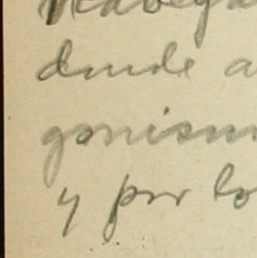 donde a
gonism
y por lo